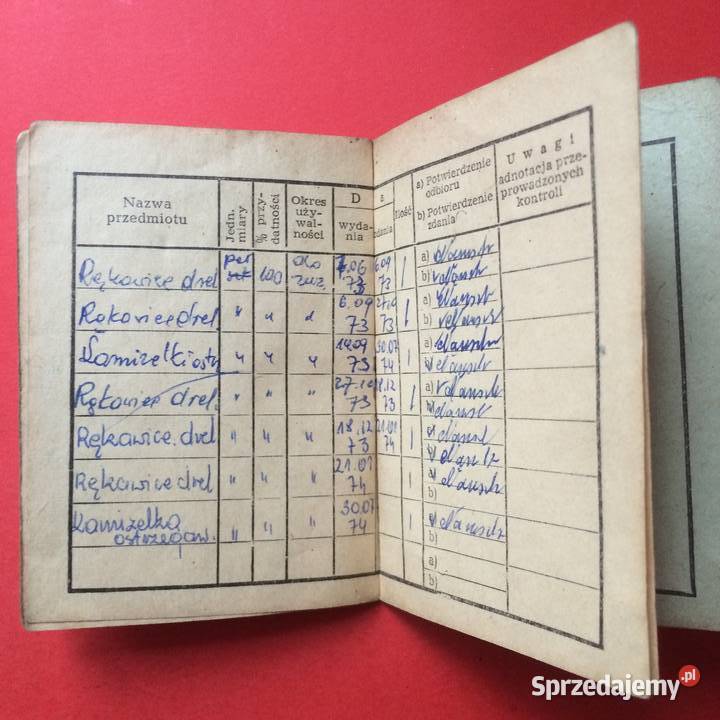 Nazwa przedmiotu
Jedn. miary
% przy- datności
Okres uży- wal- ności
D a
wyda- nia
zdania
Ilość
a) Potwierdzenie odbioru
b) Potwierdzenie zdania
Uwagi
adnotacja prze- prowadzonych kontroli
Rękawice drel 100 do zuż. 73 6.09 73 a) b)
Rękawice drel " " " 6.09 73 27.10 73 a) b)
Kamizelki ostrz " " " 14.09 73 30.07 74 a) b)
Rękawice drel. " " " 27.10 73 18.12 73 a) b)
Rękawice drel " " " 18.12 73 21.01 74
Rękawice drel " " " 21.01 74 a) b)
Kamizelka ostrzegaw. " " " 30.07 74
a)
b)
Sprzedajemy.pl